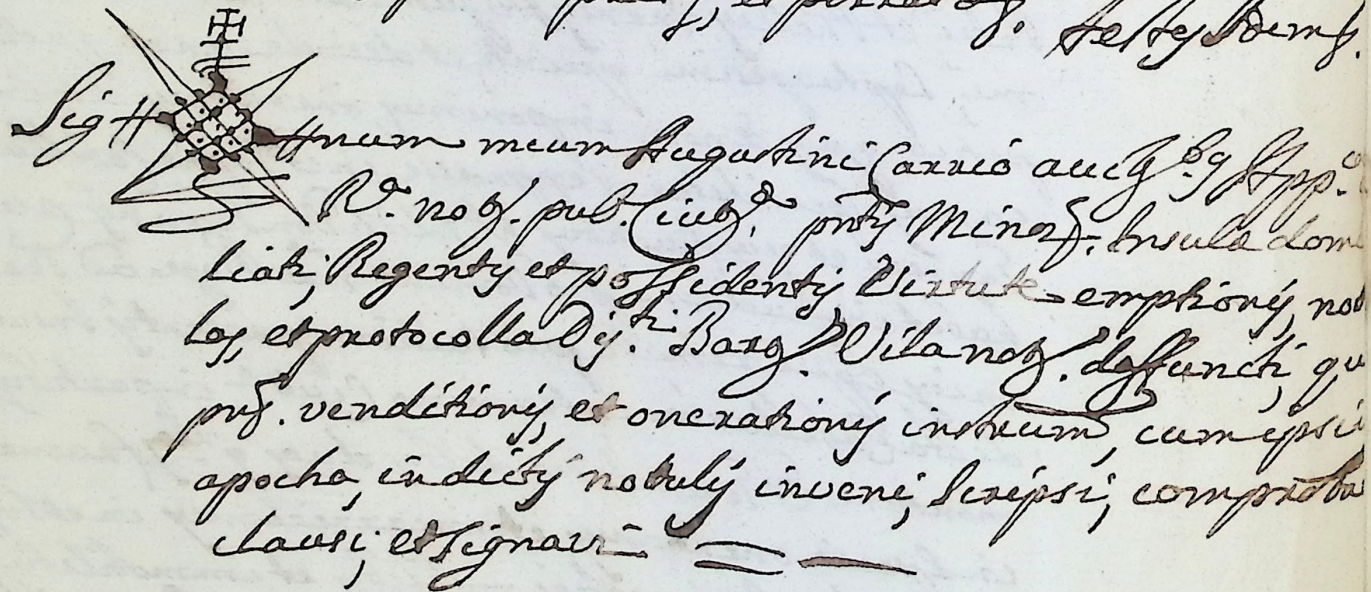 testes idem
Sig++num meum Augustini Carrió auctt.bus App.ca
Ra. not. pub. Civit. pntis Minor. Insulæ domi
liati, Regentis et possidentis Virtute emptionis, not
las, et protocolla Dis.ti Barg. Vila not. deffuncti, qu
pns. venditionis, et onerationis instrum, cum ipsi
apocha, in dictis notulis inveni, scripsi, comproba
clausi, et signavi